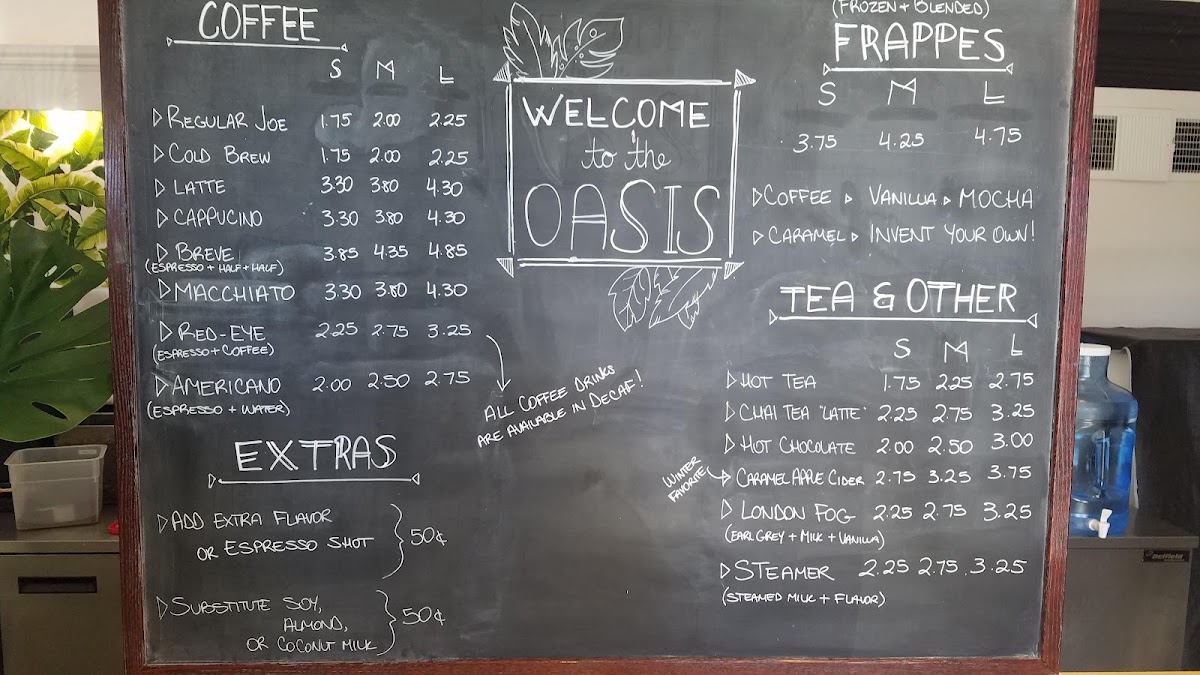 COFFEE
S M L
REGULAR JOE 1.75 2.00 2.25
COLD BREW 1.75 2.00 2.25
LATTE 3.30 3.80 4.30
CAPPUCINO 3.30 3.80 4.30
BREVE 3.85 4.35 4.85
(ESPRESSO + HALF + HALF)
MACCHIATO 3.30 3.80 4.30
RED-EYE 2.25 2.75 3.25
(ESPRESSO + COFFEE)
AMERICANO 2.00 2.50 2.75
(ESPRESSO + WATER)
ALL COFFEE DRINKS
ARE AVAILABLE IN DECAF!
EXTRAS
ADD EXTRA FLAVOR
OR ESPRESSO SHOT
50¢
SUBSTITUTE SOY,
ALMOND,
OR COCONUT MILK
50¢
WELCOME
to the
OASIS
(FROZEN + BLENDED)
FRAPPES
S M L
3.75 4.25 4.75
COFFEE VANILLA MOCHA
CARAMEL INVENT YOUR OWN!
TEA & OTHER
S M L
HOT TEA 1.75 2.25 2.75
CHAI TEA "LATTE" 2.25 2.75 3.25
HOT CHOCOLATE 2.00 2.50 3.00
WINTER
FAVORITE
CARAMEL APPLE CIDER 2.75 3.25 3.75
LONDON FOG 2.25 2.75 3.25
(EARL GREY + MILK + VANILLA)
STEAMER 2.25 2.75 3.25
(STEAMED MILK + FLAVOR)
Delfield